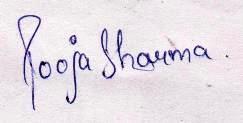 Pooja Sharma.